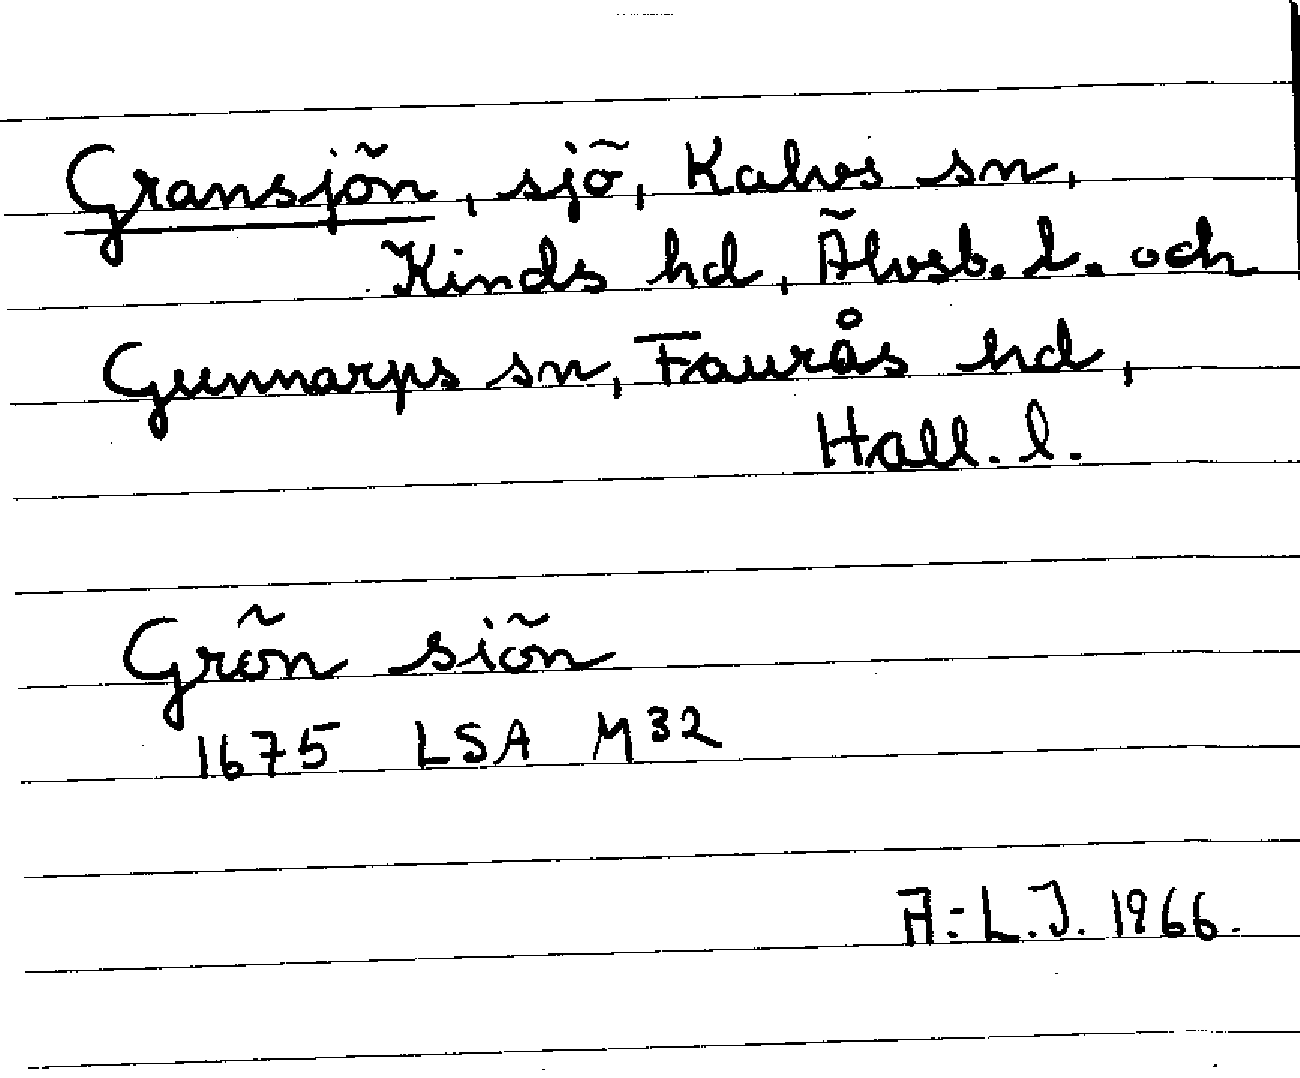 Gransjön, sjö, Kalvs sn,
Kinds hd, Älvsb. l. och
Gunnarps sn, Faurås hd,
Hall. l.
Grön siön
1675 LSA M32
A:L.J. 1966.